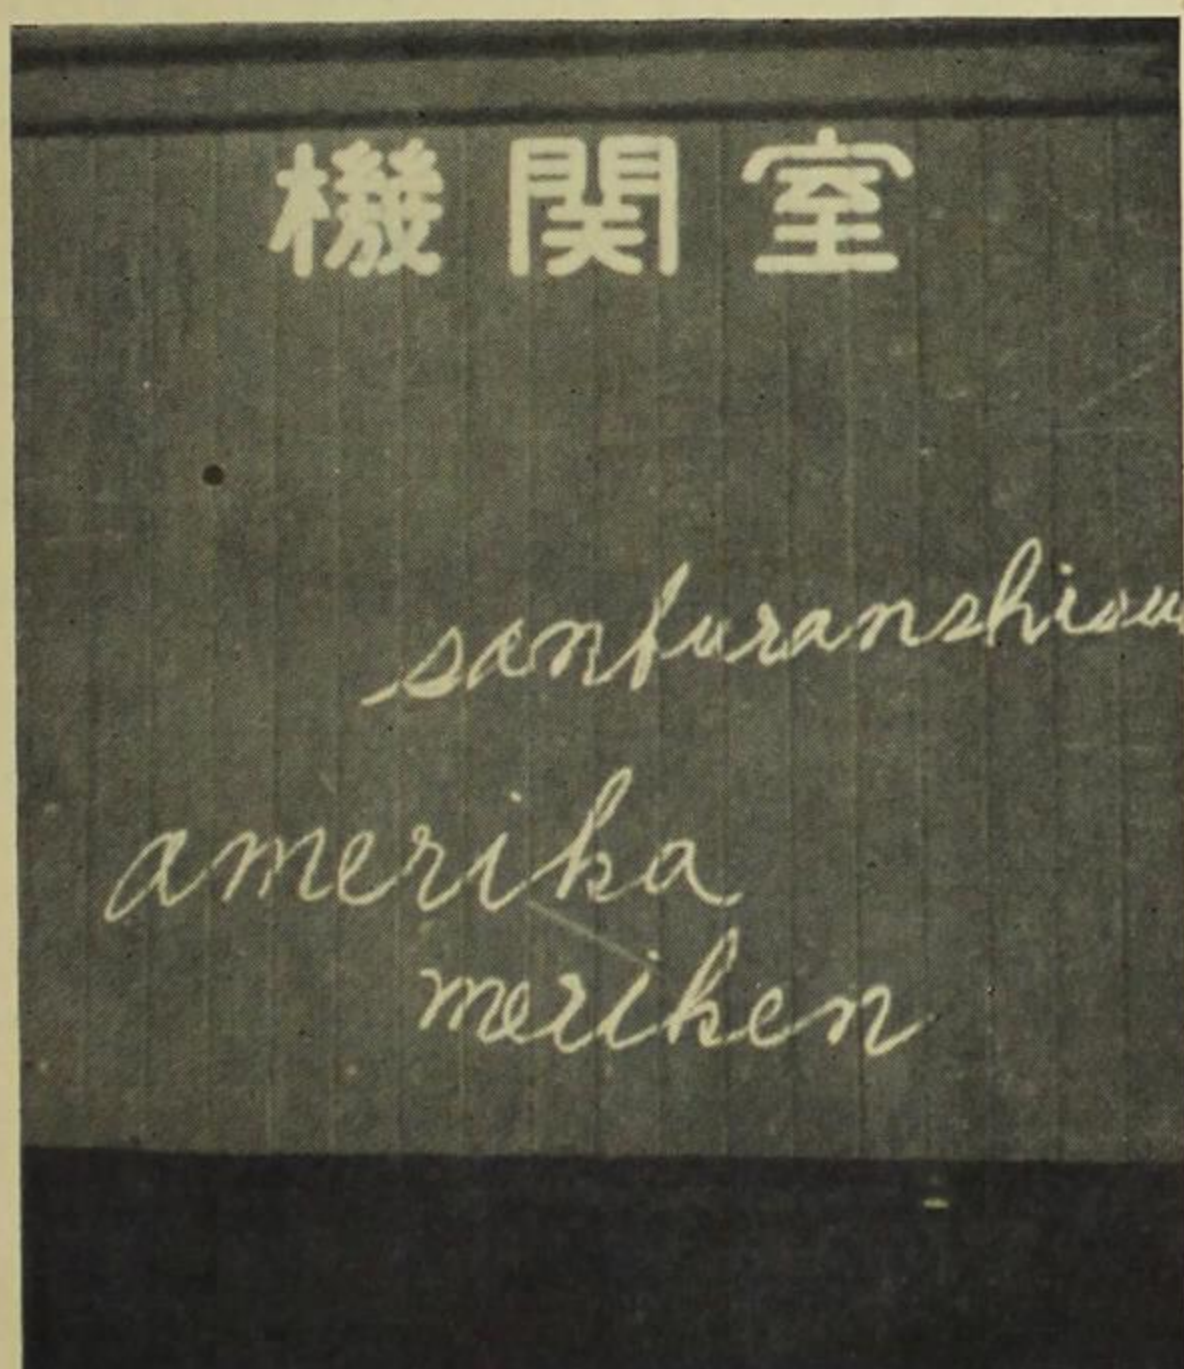 機関室
sanfuranshisu
amerika
meriken